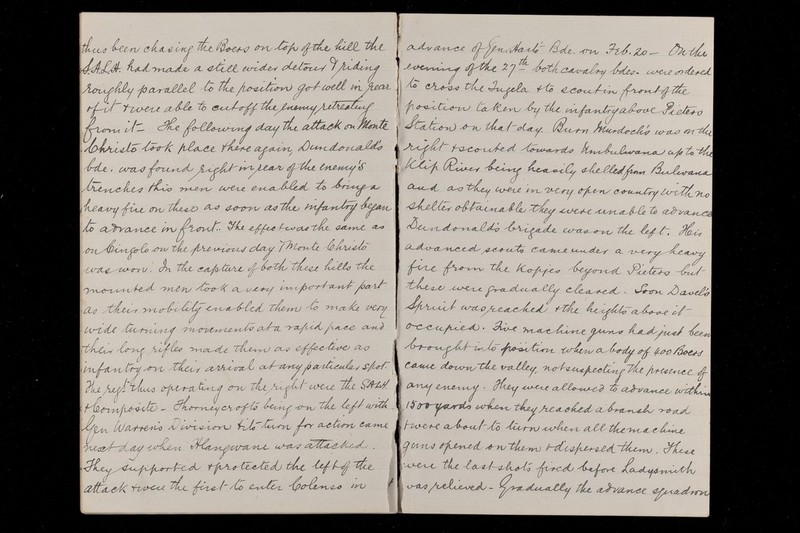 thus been chasing the Boers on top of the hill the
S.A.L.H. had made a still wider detour & riding
roughly parallel to the position got well in rear
of it & were able to cut off the enemy retreating
from it - The following day the attack on Monte
Christo took place & here again, Dundonald's
bde. was found right in rear of the enemy's
trenches & his men were enabled to bring a
heavy fire on these as soon as the infantry began
to advance in front. The effect was the same as
on Cingolo on the previous day & Monte Christo
was won. In the capture of both these hills the
mounted men took a very important part
as their mobility enabled them to make very
wide turning movements at a rapid pace and
their long rifles made them as effective as
infantry on their arrival at any particular spot
The regts thus operating on the right were the SALH
& Composite - Thorneycrofts being on the left with
Gen Warren's Division & its turn for action came
next day when Hlangwane was attacked.
They supported & protected the left of the
attack & were the first to enter Colenso in
advance of Gen. Hart's Bde. on Feb. 20 - On the
evening of the 27th both cavalry bdes. were ordered
to cross the Tugela & to scout in front of the
position taken by the infantry above Pieters
Station on that day. Burn Murdoch's was on the
right & scouted towards Umbulwana up to the
Klip River being heavily shelled from Bulwana
and as they were in very open country with no
shelter obtainable they were unable to advance
Dundonald's brigade was on the left. His
advanced scouts came under a very heavy
fire from the Kopjes beyond Pieters but
these were gradually cleared. Soon Davel's
Spruit was reached & the heights above it
occupied. Five machine guns had just been
brought into position when a body of 400 Boers
came down the valley, not suspecting the presence of
any enemy. They were allowed to advance within
1500 yards when they reached a branch road
& were about to turn when all the machine
guns opened on them & dispersed them. These
were the last shots fired before Ladysmith
was relieved - Gradually the advance squadron